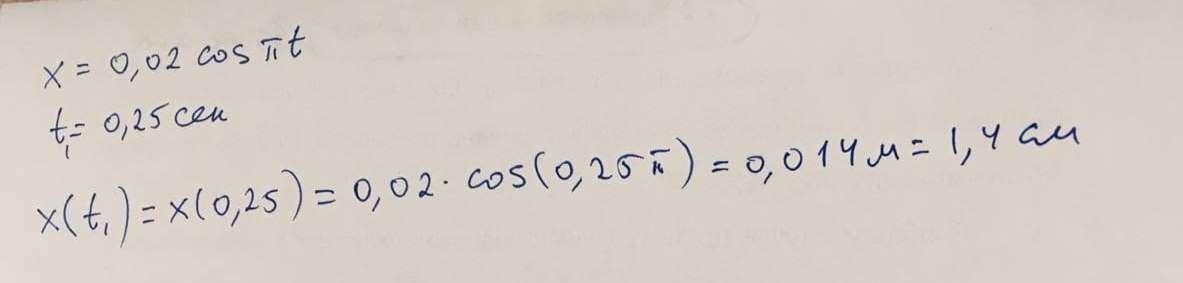 x = 0,02 cos πt
t₁ = 0,25 сек
x(t₁) = x(0,25) = 0,02 · cos(0,25π) = 0,014 м = 1,4 см